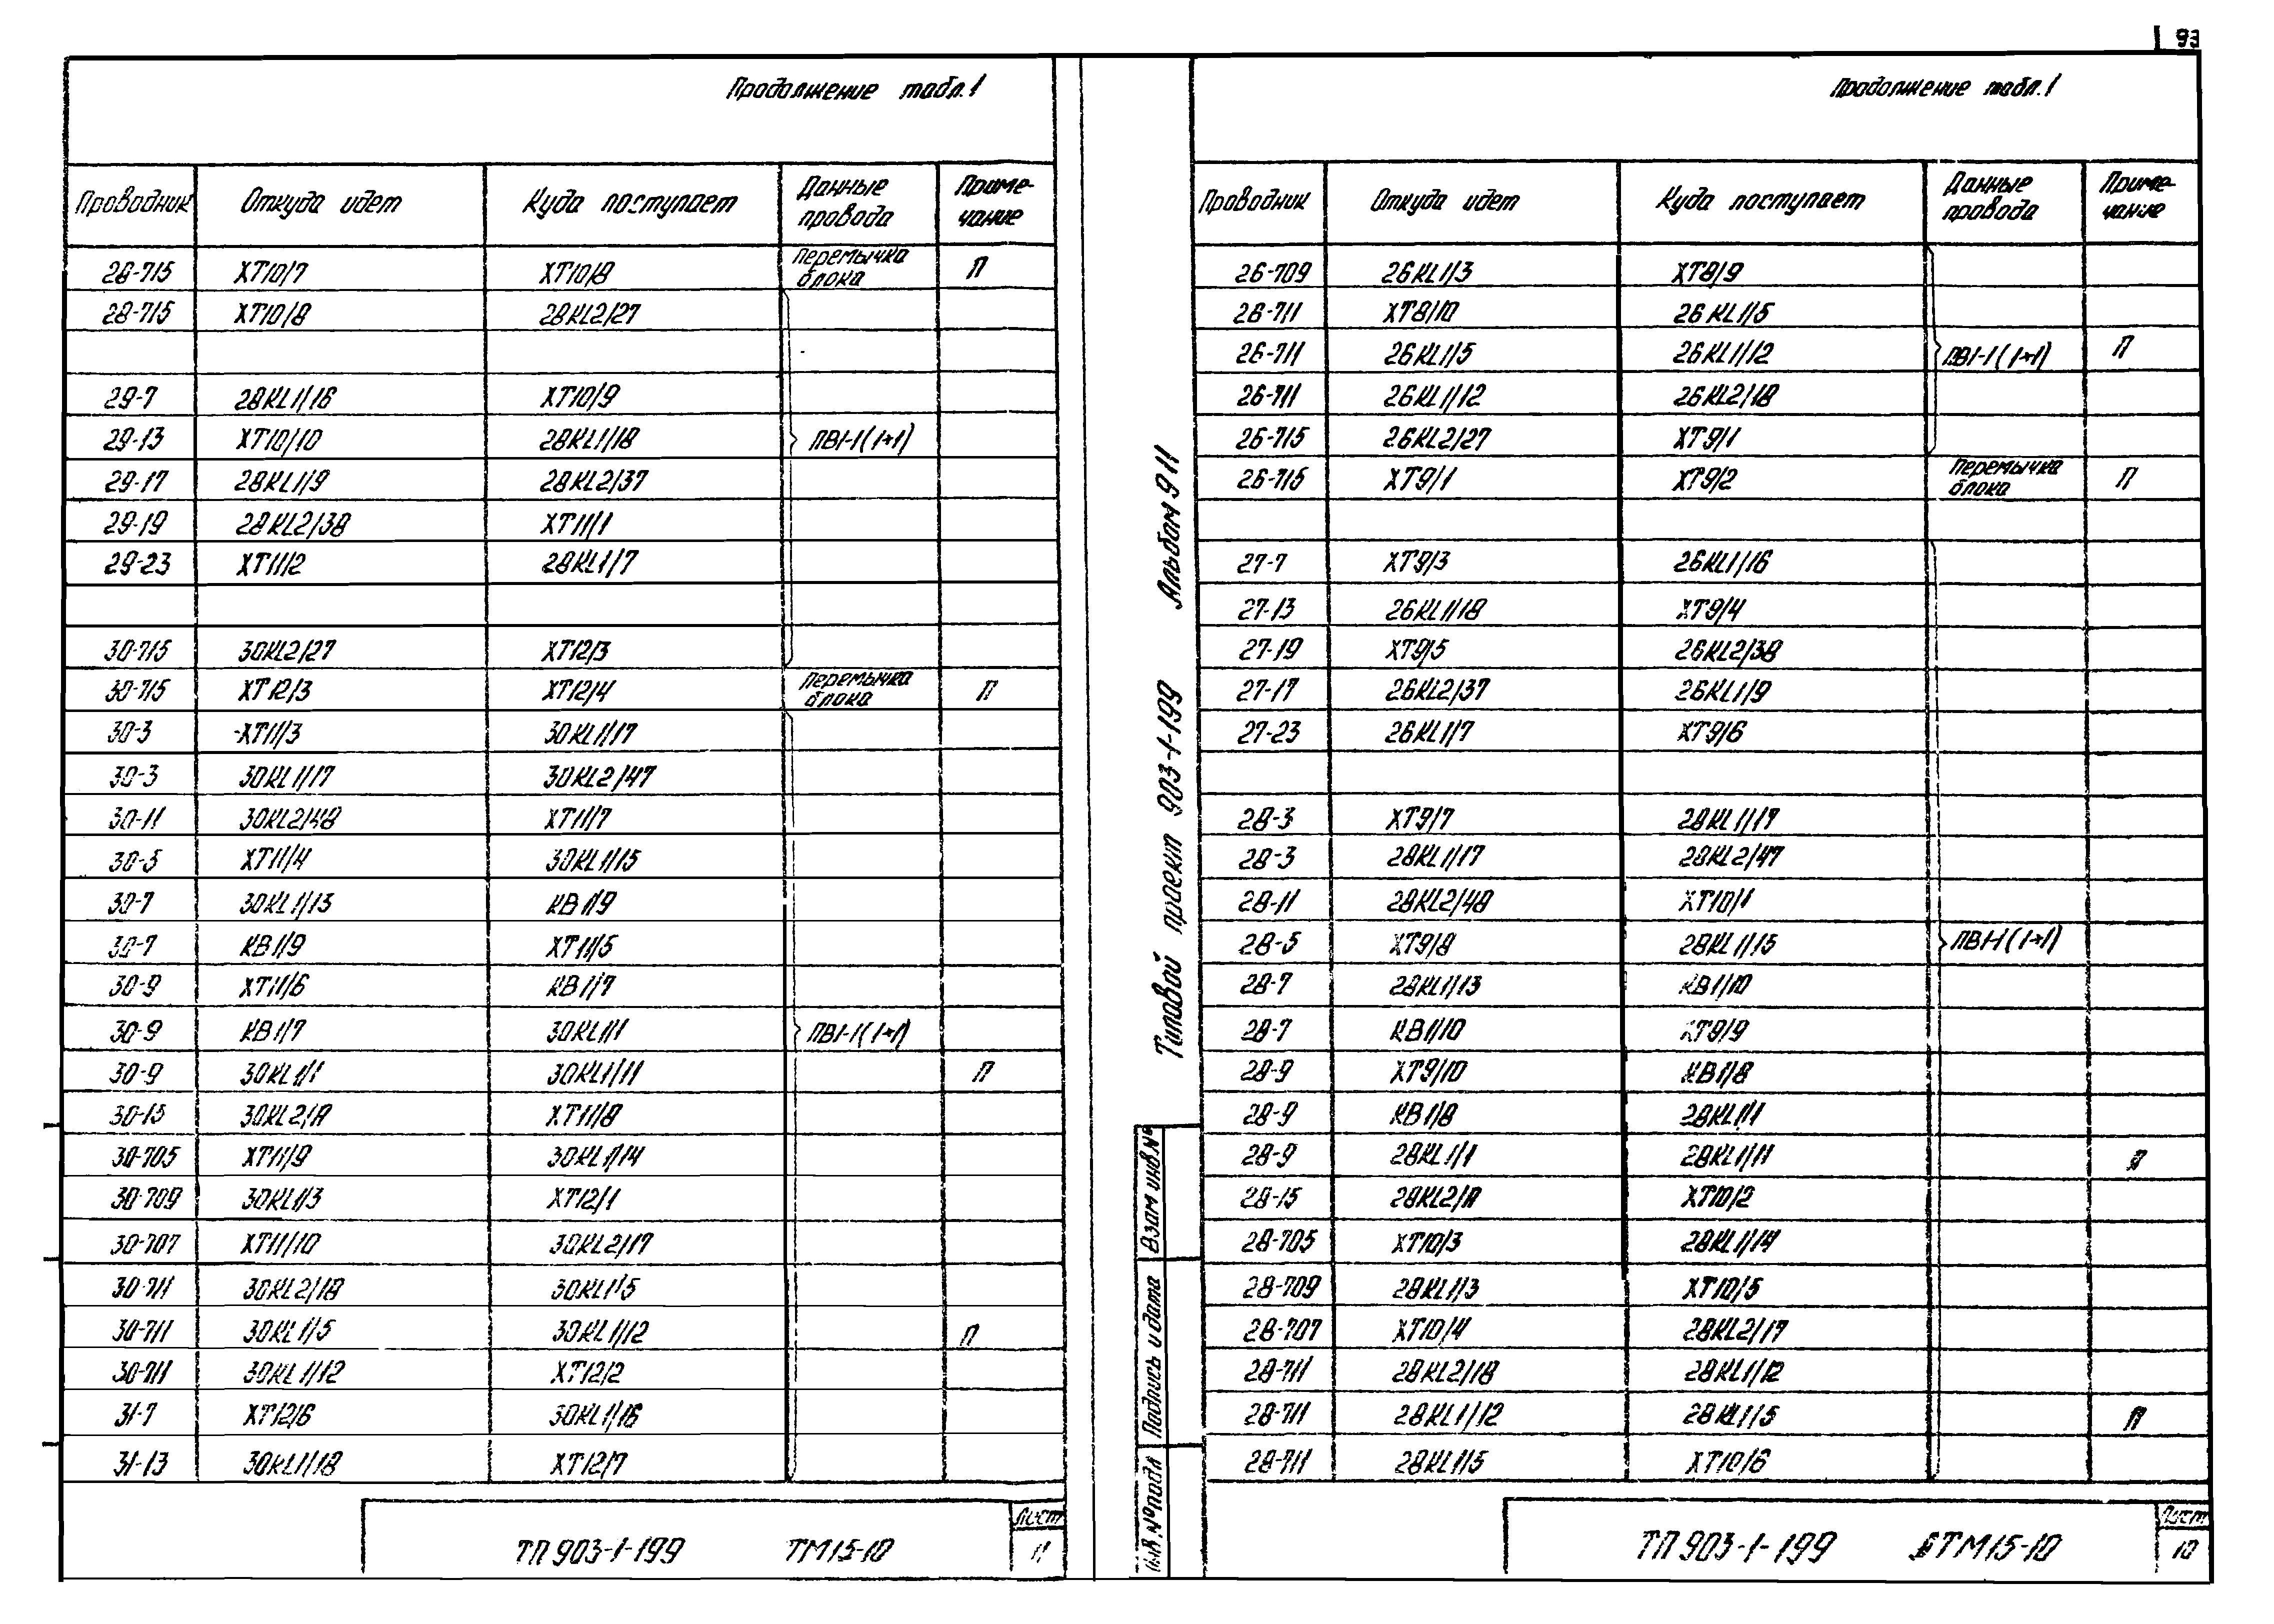 93
Продолжение табл.1
Проводник Откуда идет Куда поступает Данные провода Примечание
28-715 XT10/7 XT10/8 Перемычка блока П
28-715 XT10/8 28KL2/27
29-7 28KL1/16 XT10/9
29-13 XT10/10 28KL1/18 ПВ1-1(1*1)
29-17 28KL1/9 28KL2/37
29-19 28KL2/38 XT11/1
29-23 XT11/2 28KL1/7
30-715 30KL2/27 XT12/3
30-715 XT12/3 XT12/4 Перемычка блока П
30-3 XT11/3 30KL1/17
30-3 30KL1/17 30KL2/47
30-11 30KL2/48 XT11/7
30-5 XT11/4 30KL1/15
30-7 30KL1/13 КВ1/9
30-7 КВ1/9 XT11/5
30-9 XT11/6 КВ1/7
30-9 КВ1/7 30KL1/1 ПВ1-1(1*1)
30-9 30KL1/1 30KL1/11 П
30-15 30KL2/А XT11/8
30-705 XT11/9 30KL1/14
30-709 30KL1/3 XT12/1
30-707 XT11/10 30KL2/17
30-711 30KL2/18 30KL1/5
30-711 30KL1/5 30KL1/12 П
30-711 30KL1/12 XT12/2
31-7 XT12/6 30KL1/16
31-13 30KL1/18 XT12/7
ТП 903-1-199 ТМ15-10
Лист
11
Альбом 9 11
Типовой проект 903-1-199
Взам инв.№
Подпись и дата
Инв.№ подл
Продолжение табл.1
Проводник Откуда идет Куда поступает Данные провода Примечание
26-709 26KL1/3 XT8/9
26-711 XT8/10 26KL1/5
26-711 26KL1/5 26KL1/12 ПВ1-1(1*1) П
26-711 26KL1/12 26KL2/18
26-715 26KL2/27 XT9/1
26-715 XT9/1 XT9/2 Перемычка блока П
27-7 XT9/3 26KL1/16
27-13 26KL1/18 XT9/4
27-19 XT9/5 26KL2/38
27-17 26KL2/37 26KL1/9
27-23 26KL1/7 XT9/6
28-3 XT9/7 28KL1/17
28-3 28KL1/17 28KL2/47
28-11 28KL2/48 XT10/1
28-5 XT9/8 28KL1/15 ПВ1-1(1*1)
28-7 28KL1/13 КВ1/10
28-7 КВ1/10 XT9/9
28-9 XT9/10 КВ1/8
28-9 КВ1/8 28KL1/1
28-9 28KL1/1 28KL1/11 П
28-15 28KL2/А XT10/2
28-705 XT10/3 28KL1/14
28-709 28KL1/3 XT10/5
28-707 XT10/4 28KL2/17
28-711 28KL2/18 28KL1/12
28-711 28KL1/12 28KL1/5 П
28-711 28KL1/5 XT10/6
ТП 903-1-199 ТМ15-10
Лист
10